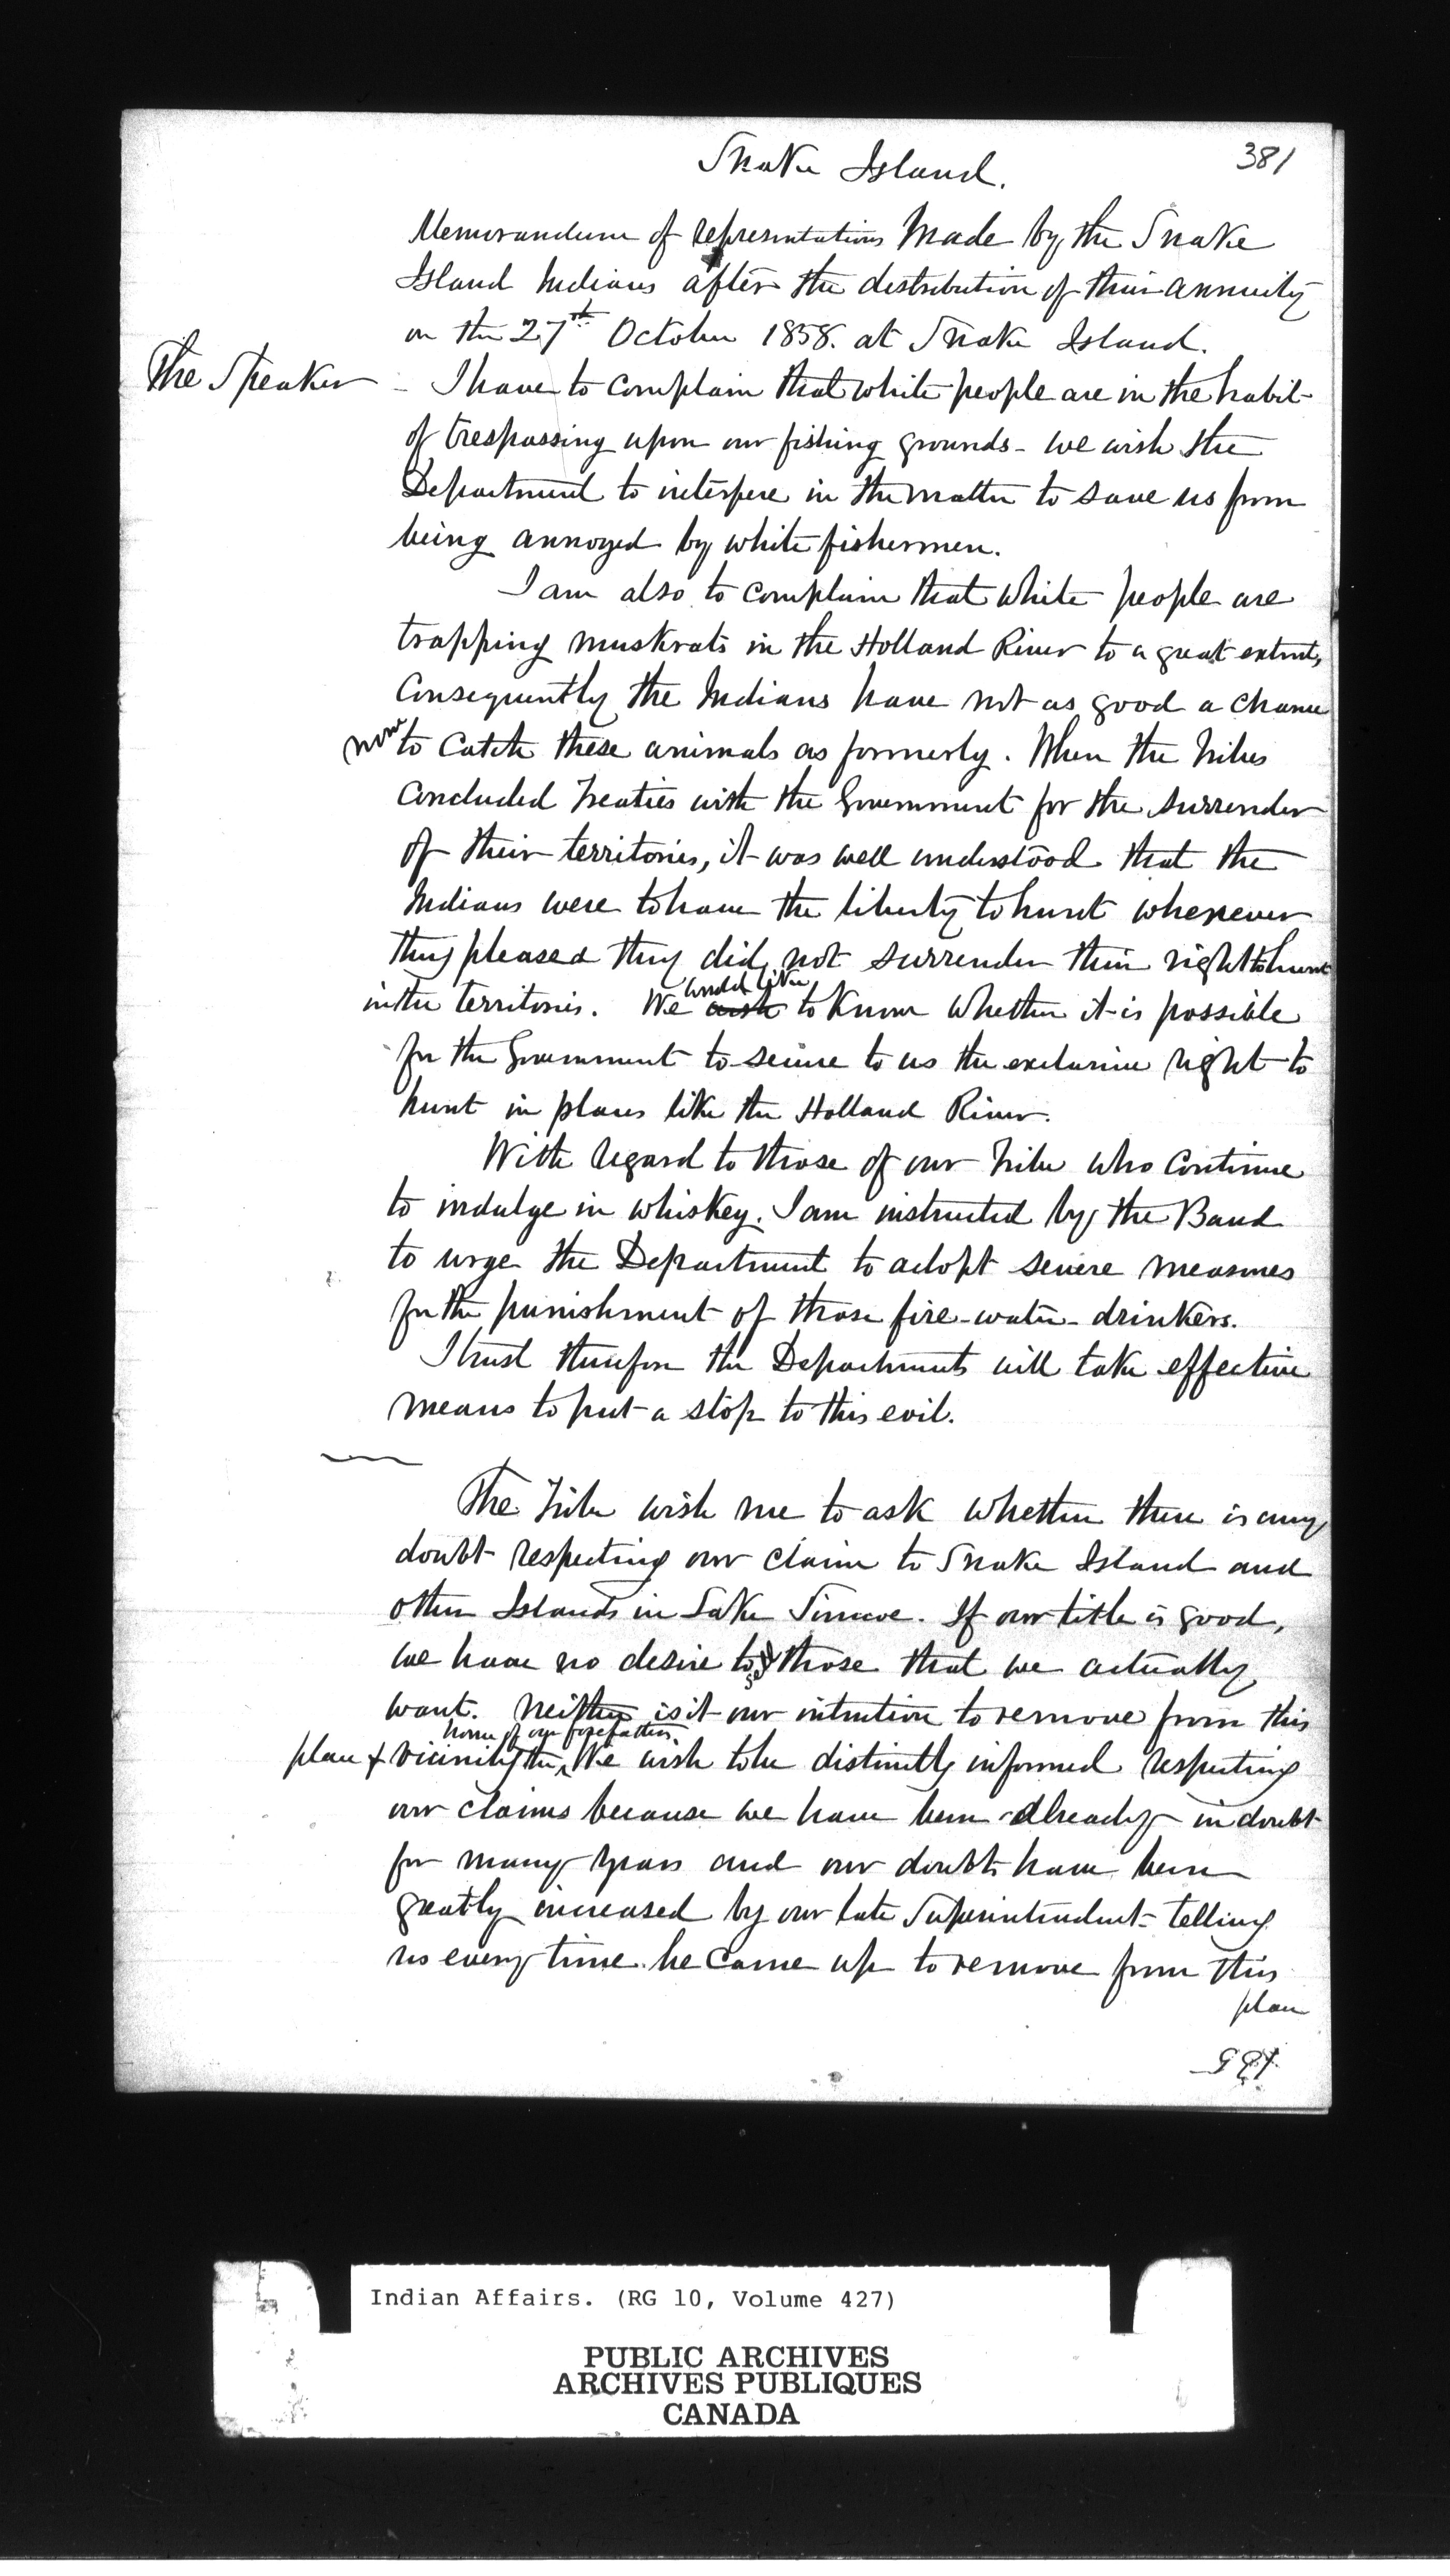 381
Snake Island.
Memorandum of representations Made by the Snake
Island Indians after the distribution of their annuity
on the 27th October 1858. at Snake Island.
The Speaker - I have to complain that white people are in the habit
of trespassing upon our fishing grounds - we wish the
Department to interfere in the matter to save us from
being annoyed by white fishermen.
I am also to complain that white people are
trapping muskrats in the Holland River to a great extent,
Consequently the Indians have not as good a chance
now to catch these animals as formerly. When the tribes
concluded treaties with the Government for the surrender
of their territories, it was well understood that the
Indians were to have the liberty to hunt whenever
they pleased they did not surrender their right to hunt
would like
in the territories. We wish to know whether it is possible
for the Government to secure to us the exclusive right to
hunt in places like the Holland River.
With regard to those of our tribe who continue
to indulge in whiskey. I am instructed by the Band
to urge the Department to adopt severe measures
for the punishment of those fire-water-drinkers.
I trust therefore the Department will take effective
means to put a stop to this evil.
The Tribe wish me to ask whether there is any
doubt respecting our claim to Snake Island and
other Islands in Lake Simcoe. If our title is good,
we have no desire to those that we actually
want. neither is it our intention to remove from this
home of our forefathers.
place & vicinity the We wish to be distinctly informed respecting
our claims because we have been already in doubt
for many years and our doubts have been
greatly increased by our late Superintendent telling
us every time he came up to remove from this
place
Indian Affairs. (RG 10, Volume 427)
PUBLIC ARCHIVES
ARCHIVES PUBLIQUES
CANADA